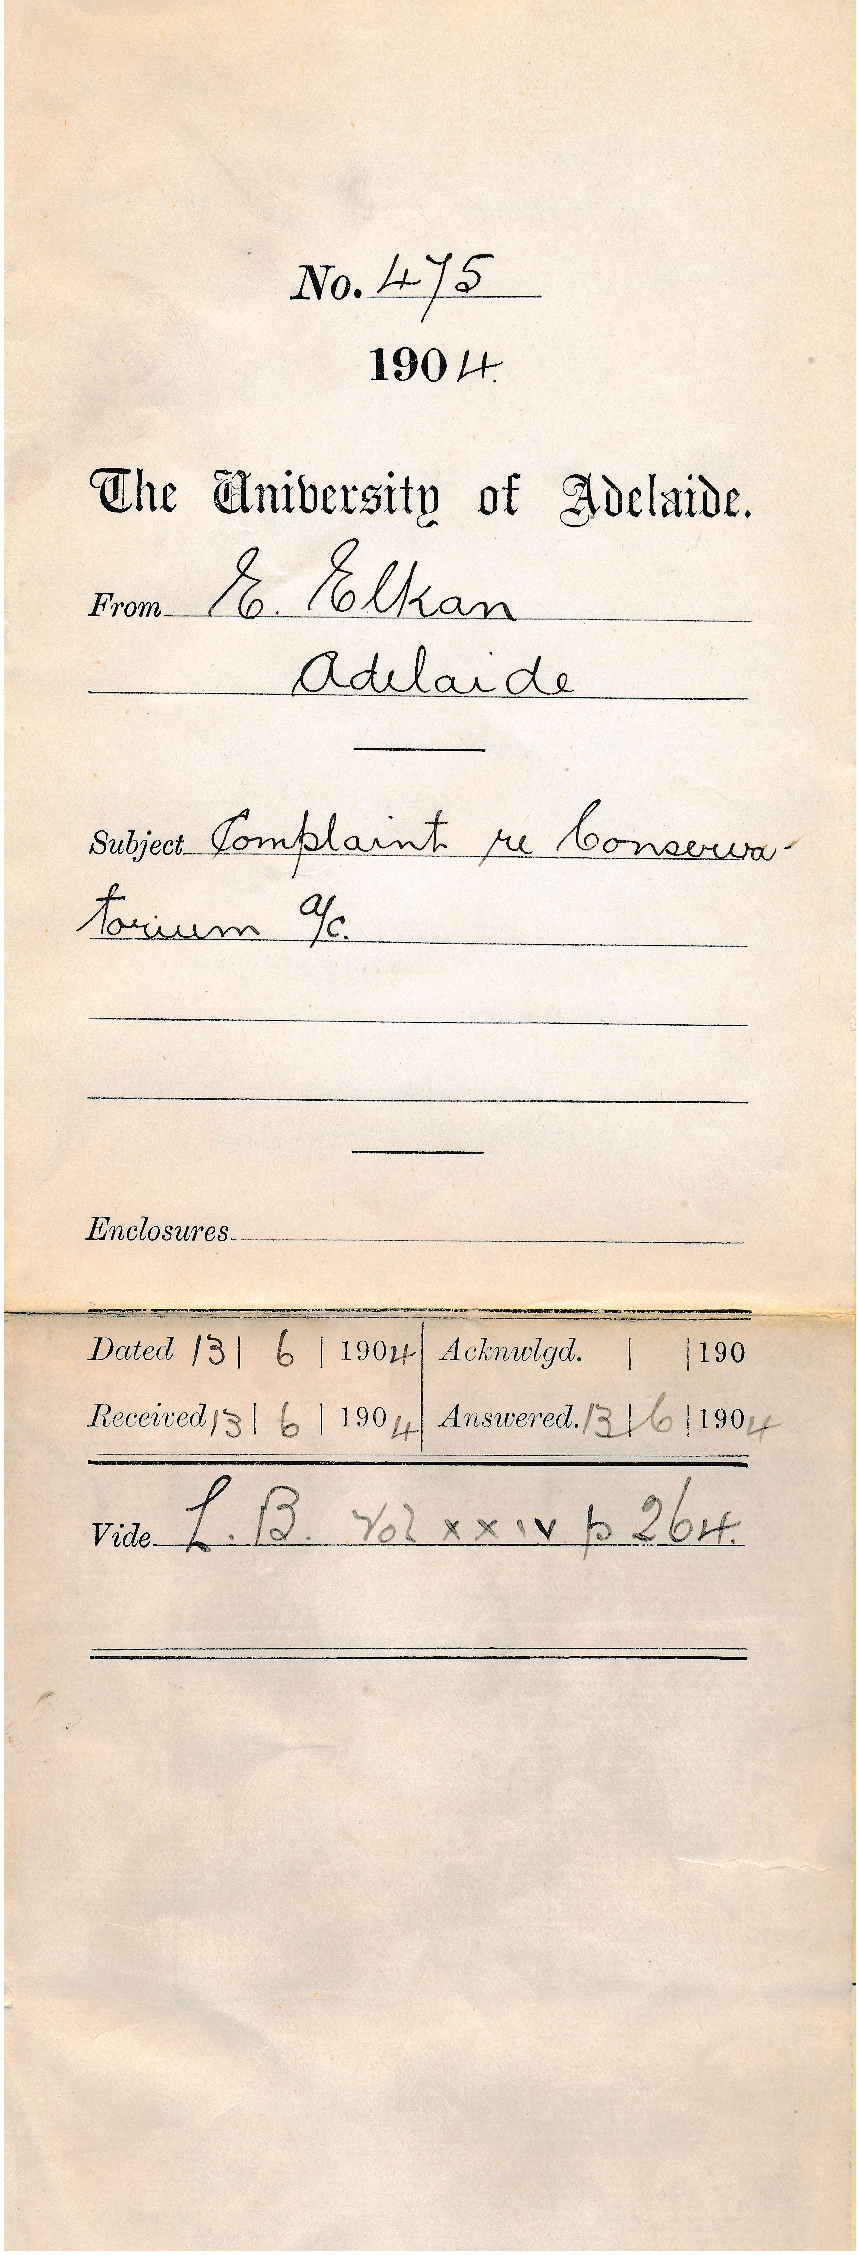 No. 475
1904.
The University of Adelaide.
From E. Elkan
Adelaide
Subject Complaint re Conserva-
torium a/c.
Enclosures
Dated 13 | 6 | 1904 Acknwlgd. | | 190
Received 13 | 6 | 1904 Answered. 13 | 6 | 1904
Vide L. B. Vol xxiv p 264.